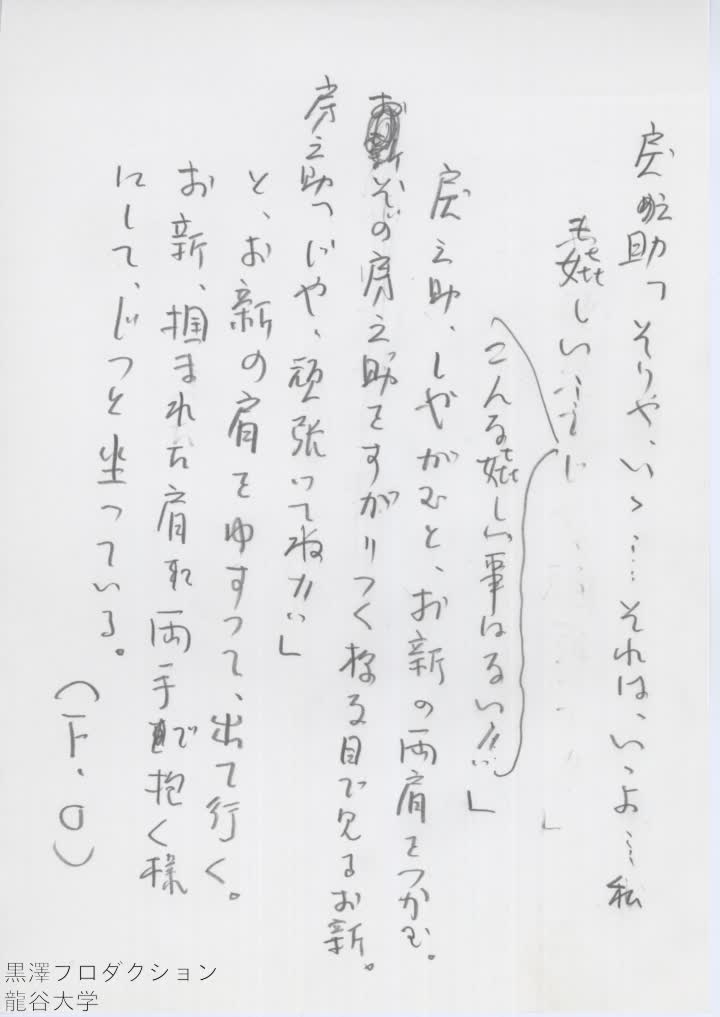 房之助「そりや、いゝ……それは、いゝよ……私
も嬉しい……
こんな嬉しい事はない!!」
房之助、しやがむと、お新の両肩をつかむ。
その房之助をすがりつく様な目で見るお新。
房之助「じや、頑張ってね!!」
と、お新の肩をゆすって、出て行く。
お新、掴まれた肩を両手で抱く様
にして、じっと坐っている。
(F・O)
黒澤プロダクション
龍谷大学